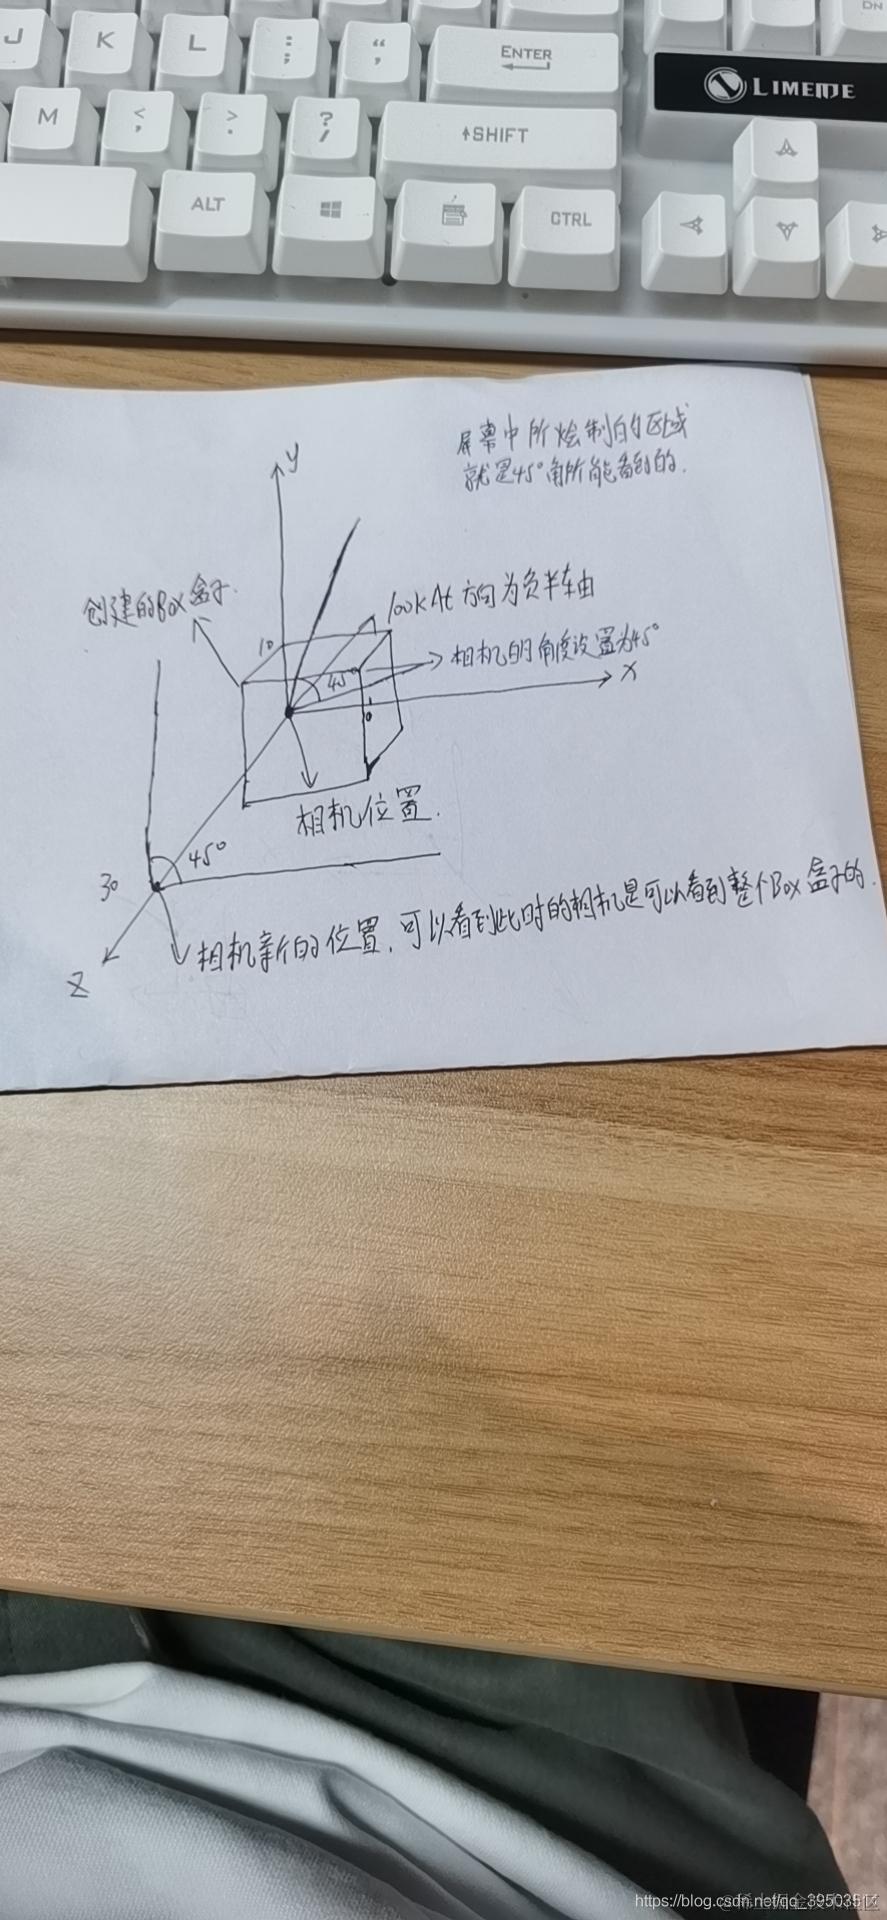 J
K
L
:
;
“
,
ENTER
DN
LIMEIDE
M
<
,
>
.
?
/
SHIFT
ALT
CTRL
屏幕中所绘制的区域
就是45°角所能看到的.
y
创建的Box盒子.
lookAt 方向为负半轴
10
相机的角度设置为45°
45°
x
10
相机位置.
45°
30
相机新的位置,可以看到此时的相机是可以看到整个Box盒子的.
Z
https://blog.csdn.net/qq_3950351
@稀土掘金技术社区